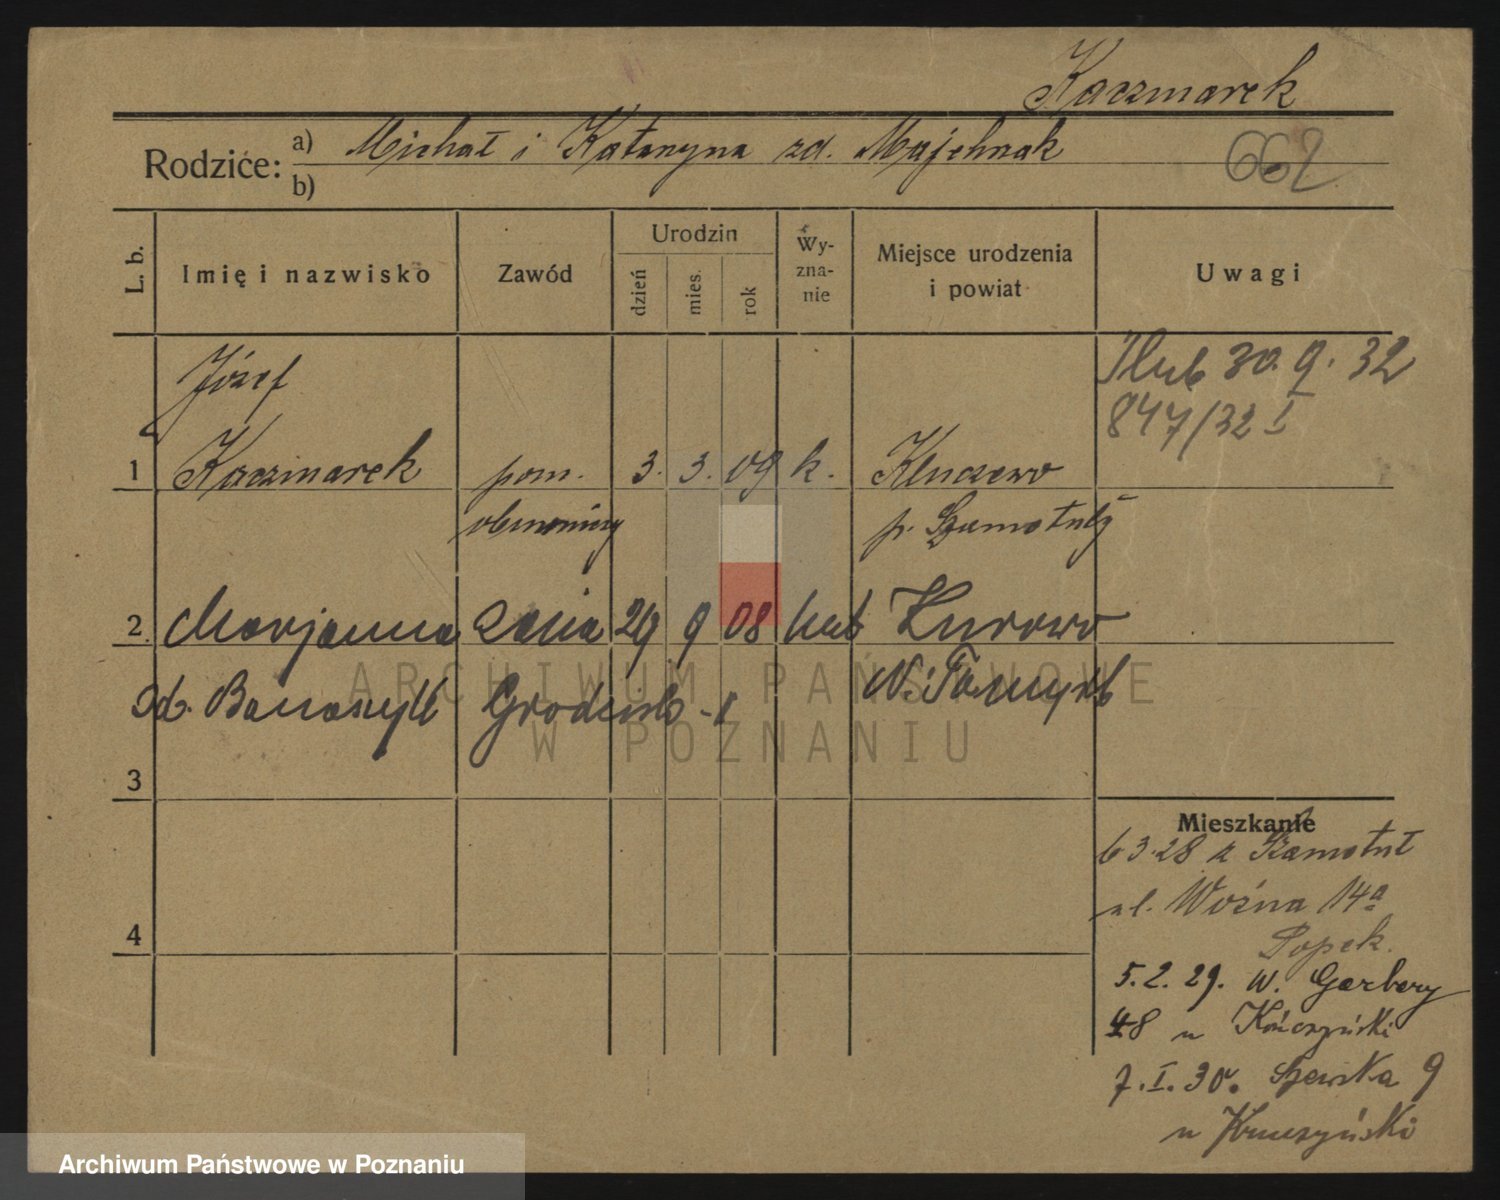 Kaczmarek
Rodzice: a) Michał i Katarzyna zd. Majchrzak
b)
662
L. b.
Imię i nazwisko
Zawód
Urodzin
dzień
mies.
rok
Wy-
zna-
nie
Miejsce urodzenia
i powiat
Uwagi
Józef
Ślub 30. 9. 32
847/32 I
1 Kaczmarek pom. 3. 3. 09 k. Kluczewo
p. Szamotuły
2. Marjanna 29 9 08 kat Kurowo
od. Banaszyk Grodzisk N. Tomyśl
3
4
Mieszkanie
6 3 28 z Szamotuł
ul. Woźna 14a
Popek.
5. 2. 29. W. Garbary
48 u Kończyński
7. I. 30. Szewska 9
u
ARCHIWUM PAŃSTWOWE
W POZNANIU
Archiwum Państwowe w Poznaniu